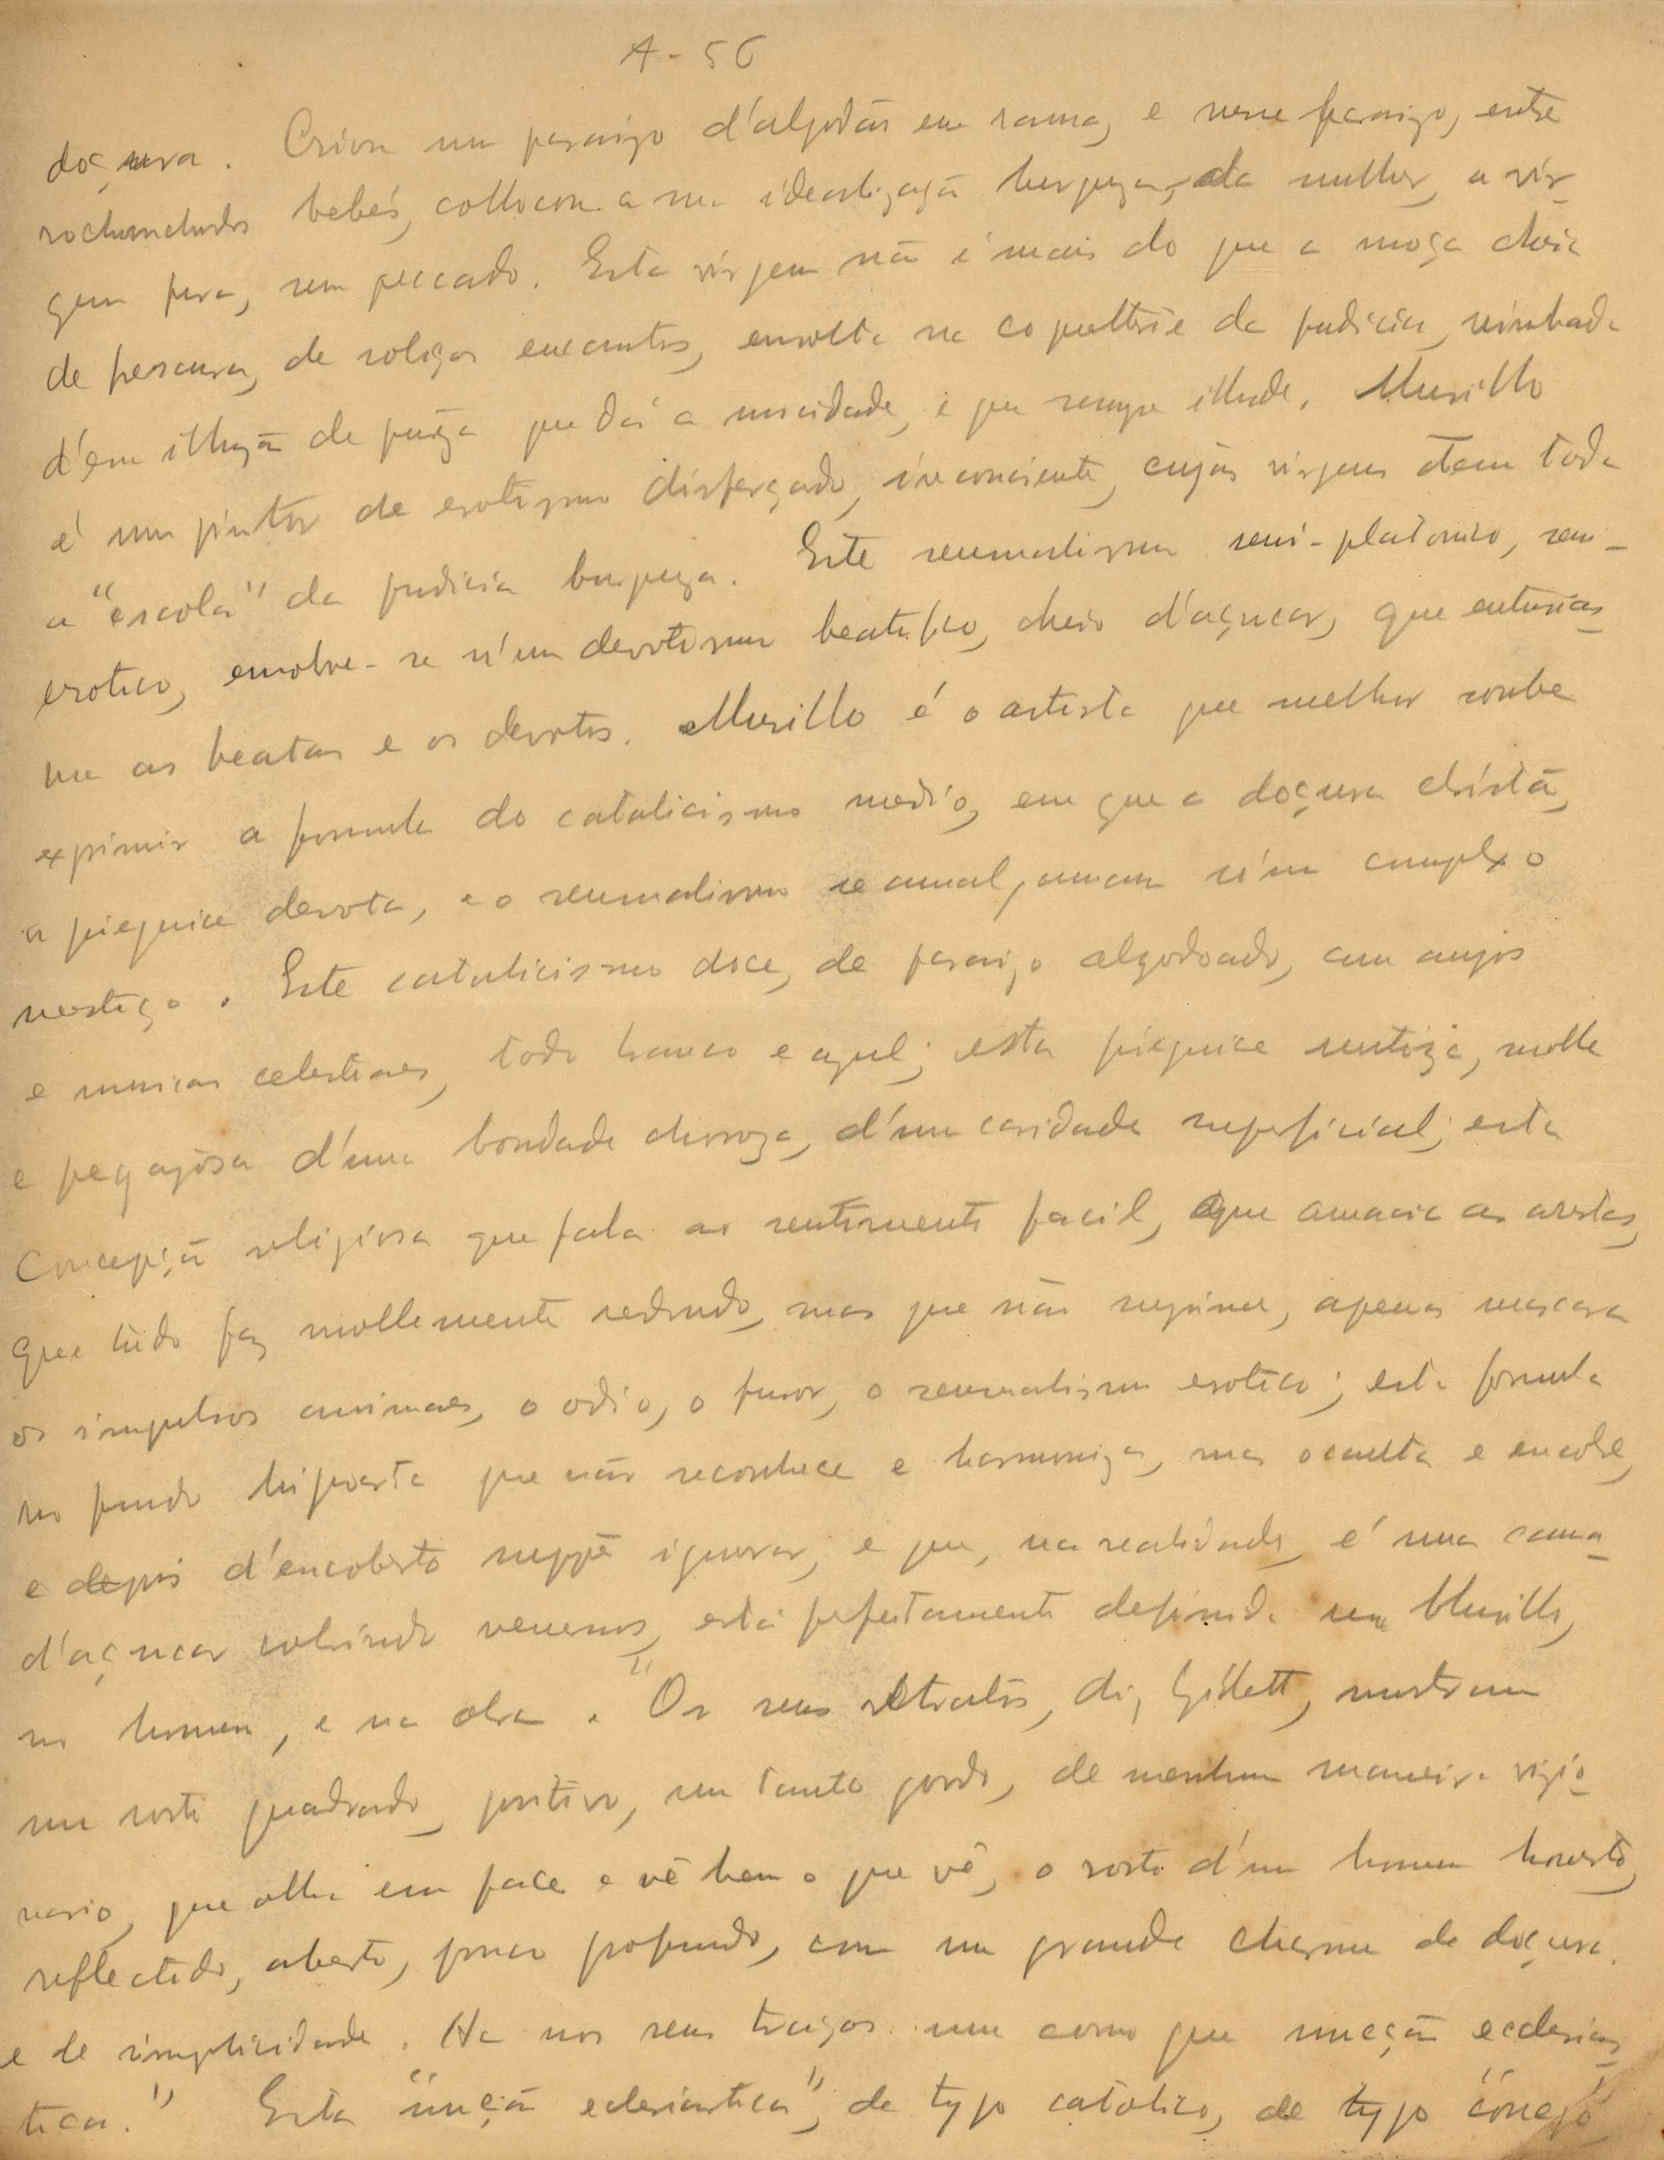 A-56
doçura. Criou um paraizo d'algodão em rama, e nesse paraizo, entre
rochunchudos bebés, collocou a sua idealização burgueza da mulher, a vir-
gem pura, sem peccado. Esta virgem não é mais do que a moça cheia
de frescura, de roliços encantos, envolta na coquetterie da pudicia,
d'em illuzão de pureza que dá a mocidade, e que sempre illude. Murillo
é um pintor de erotismo disfarçado, inconsciente, cujas virgens teem toda
a "escola" da pudicia burgueza. Este sensualismo semi-platonico, semi-
erotico, envolve-se n'um devotismo beatifico, cheio d'açucar, que enthusias-
ma as beatas e os devotos. Murillo é o artista que melhor soube
exprimir a formula do catolicismo medio, em que a doçura christã,
a pieguice devota, e o sensualismo se amalgamam n'um complexo
mestiço. Este catolicismo doce, de paraizo algodoado, com anjos
e musicas celestiaes, todo branco e azul; esta pieguice mole
e pegajosa d'uma bondade chorosa, d'uma caridade superficial; esta
concepção religiosa que fala ao sentimento facil, que amacia as arestas,
que tudo faz mollemente redondo, mas que não suprime, apenas mascara
os impulsos animaes, o odio, o furor, o sensualismo erotico; esta formula
no fundo hipocrita que não reconhece e harmoniza, mas occulta e encobre,
e depois d'encoberto suppõe ignorar, e que, na realidade, é uma cama
d'açucar cobrindo venenos, está perfeitamente definida em Murillo,
no homem, e na obra. "Os seus retratos, diz, mostram
um rosto quadrado, positivo, um tanto gordo, de nenhuma maneira visio-
nario, que olha em face e vê bem o que vê, o rosto d'um homem honesto,
reflectido, aberto, pouco profundo, com um grande charme de doçura
e de simplicidade. Ha nos seus traços um como que uncção eclesias-
tica." Esta "uncção eclesiastica", de typo catolico, de typo "conego",